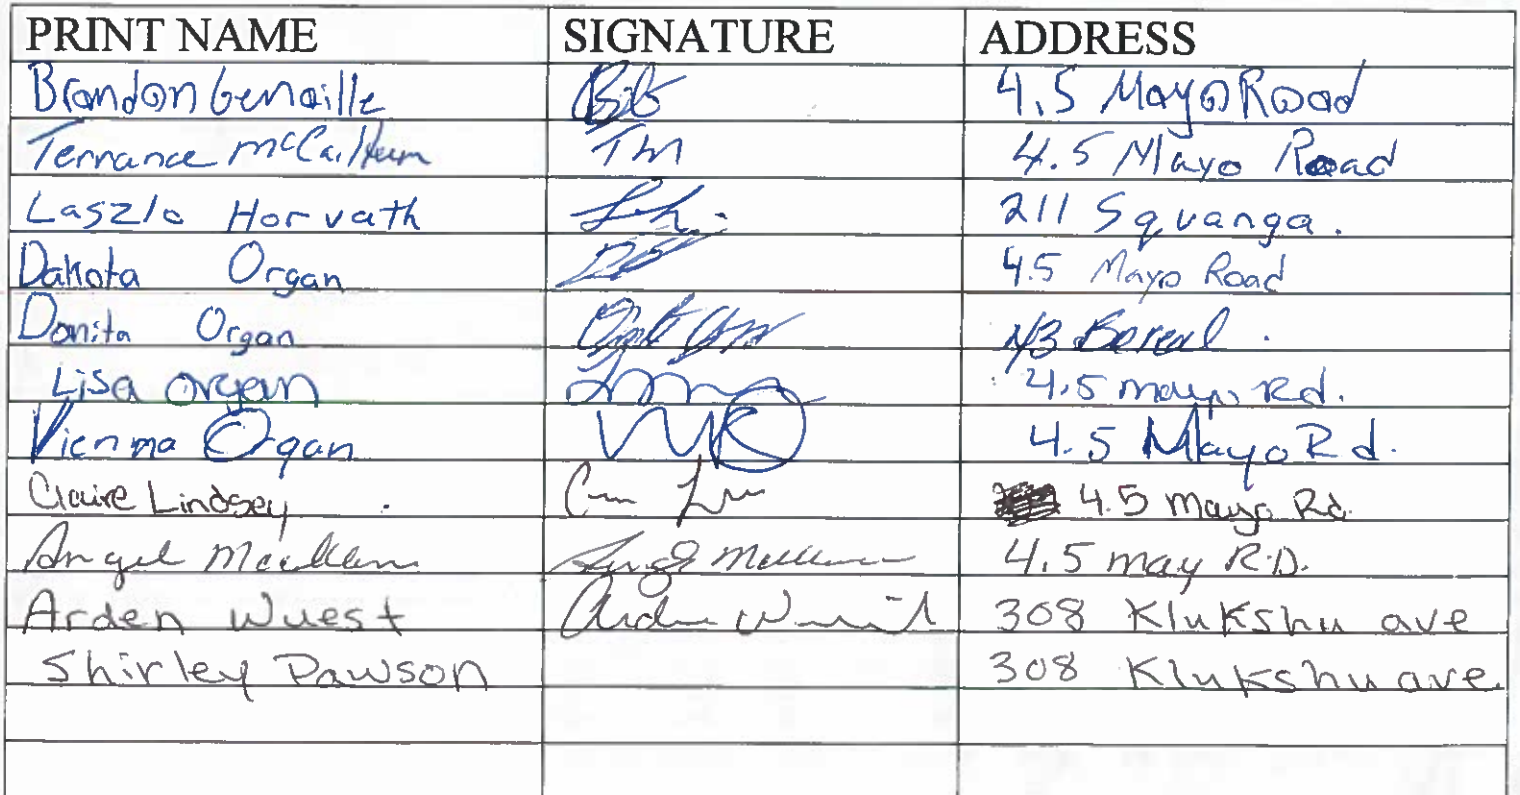 PRINT NAME SIGNATURE ADDRESS
Brandon Genaille 4.5 Mayo Road
Terrance McCallum TM 4.5 Mayo Road
Laszlo Horvath 211 Squanga.
Dakota Organ 4.5 Mayo Road
Donita Organ Boreal.
Lisa organ 4.5 mayo Rd.
Vienna Organ 4.5 Mayo Rd.
Claire Lindsey 4.5 Mayo Rd.
Angel 4.5 may R.D.
Arden Wuest 308 Klukshu ave
Shirley Dawson 308 Klukshu ave.